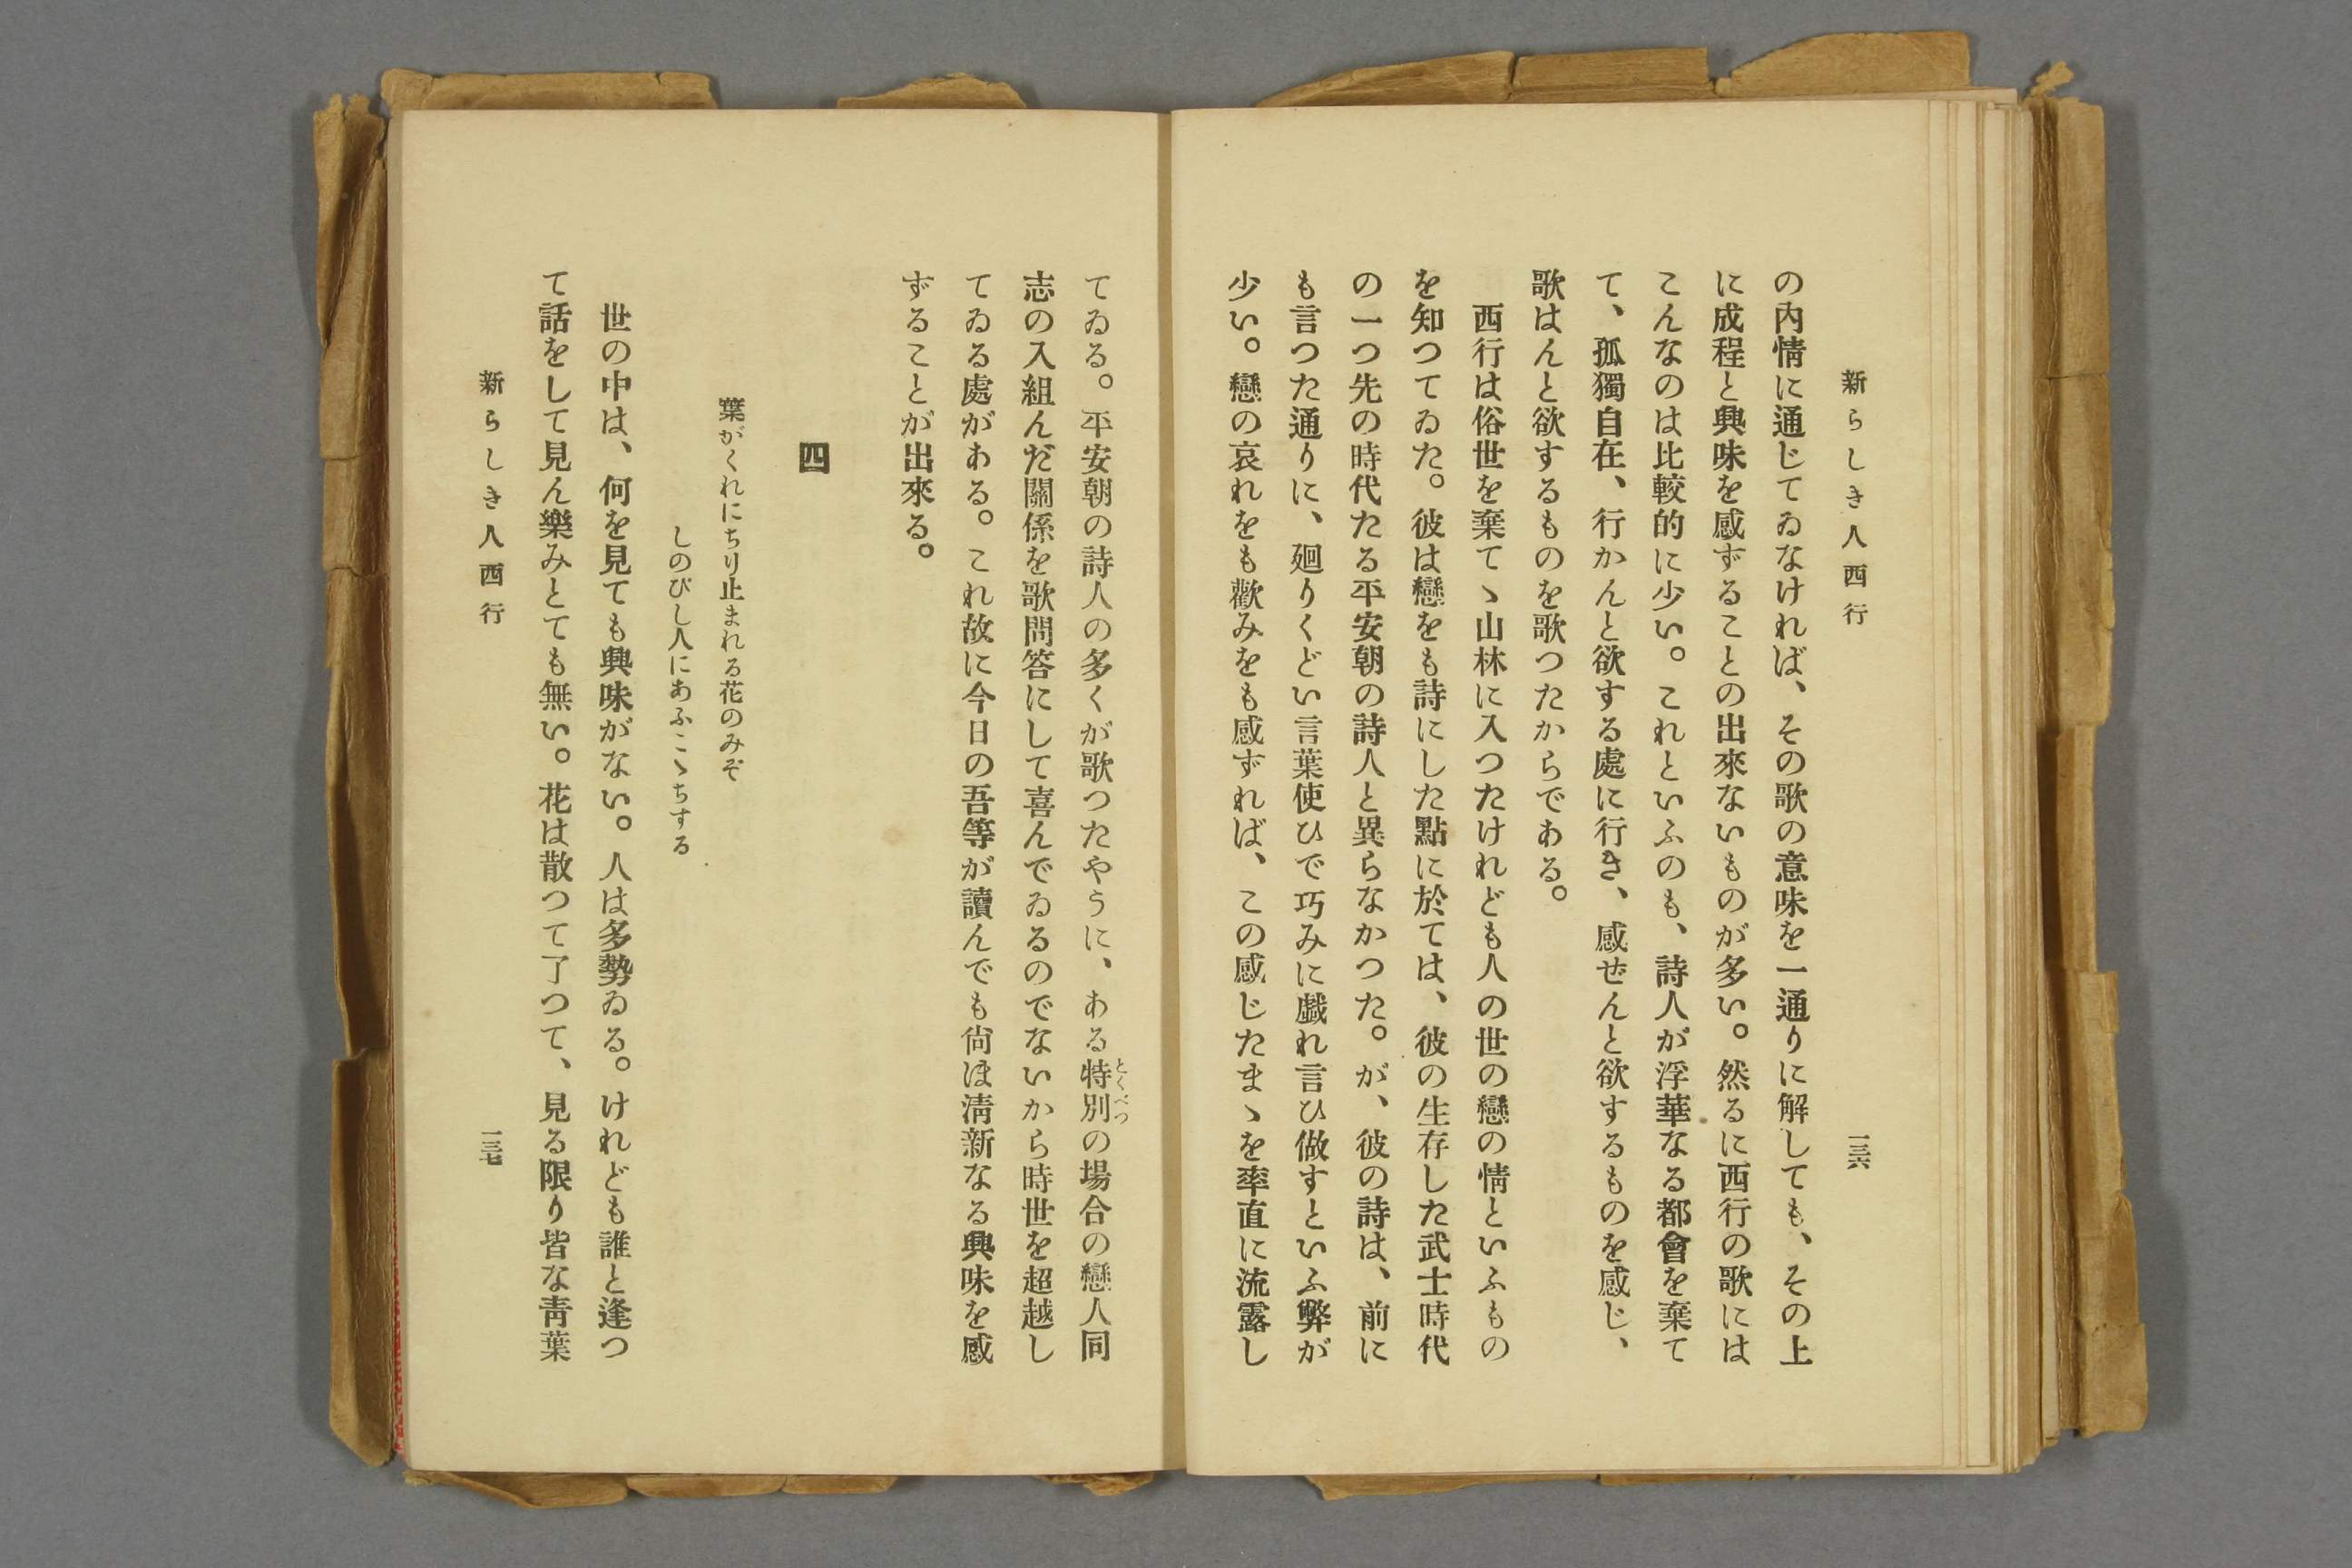 新らしき人西行
一三六
の內情に通じてゐなければ、その歌の意味を一通りに解しても、その上
に成程と興味を感ずることの出來ないものが多い。然るに西行の歌には
こんなのは比較的に少い。これといふのも、詩人が浮華なる都會を棄て
て、孤獨自在、行かんと欲する處に行き、感ぜんと欲するものを感じ、
歌はんと欲するものを歌つたからである。
西行は俗世を棄てゝ山林に入つたけれども人の世の戀の情といふもの
を知つてゐた。彼は戀をも詩にした點に於ては、彼の生存した武士時代
の一つ先の時代たる平安朝の詩人と異らなかつた。が、彼の詩は、前に
も言つた通りに、廻りくどい言葉使ひで巧みに戯れ言ひ做すといふ弊が
少い。戀の哀れをも歡みをも感ずれば、この感じたまゝを率直に流露し
てゐる。平安朝の詩人の多くが歌つたやうに、ある特別の場合の戀人同
とくべつ
志の入組んだ關係を歌問答にして喜んでゐるのでないから時世を超越し
てゐる處がある。これ故に今日の吾等が讀んでも尙ほ淸新なる興味を感
ずることが出來る。
四
葉がくれにちり止まれる花のみぞ
しのびし人にあふこゝちする
世の中は、何を見ても興味がない。人は多勢ゐる。けれども誰と逢つ
て話をして見ん樂みとても無い。花は散つて了つて、見る限り皆な靑葉
新らしき人西行
一三七